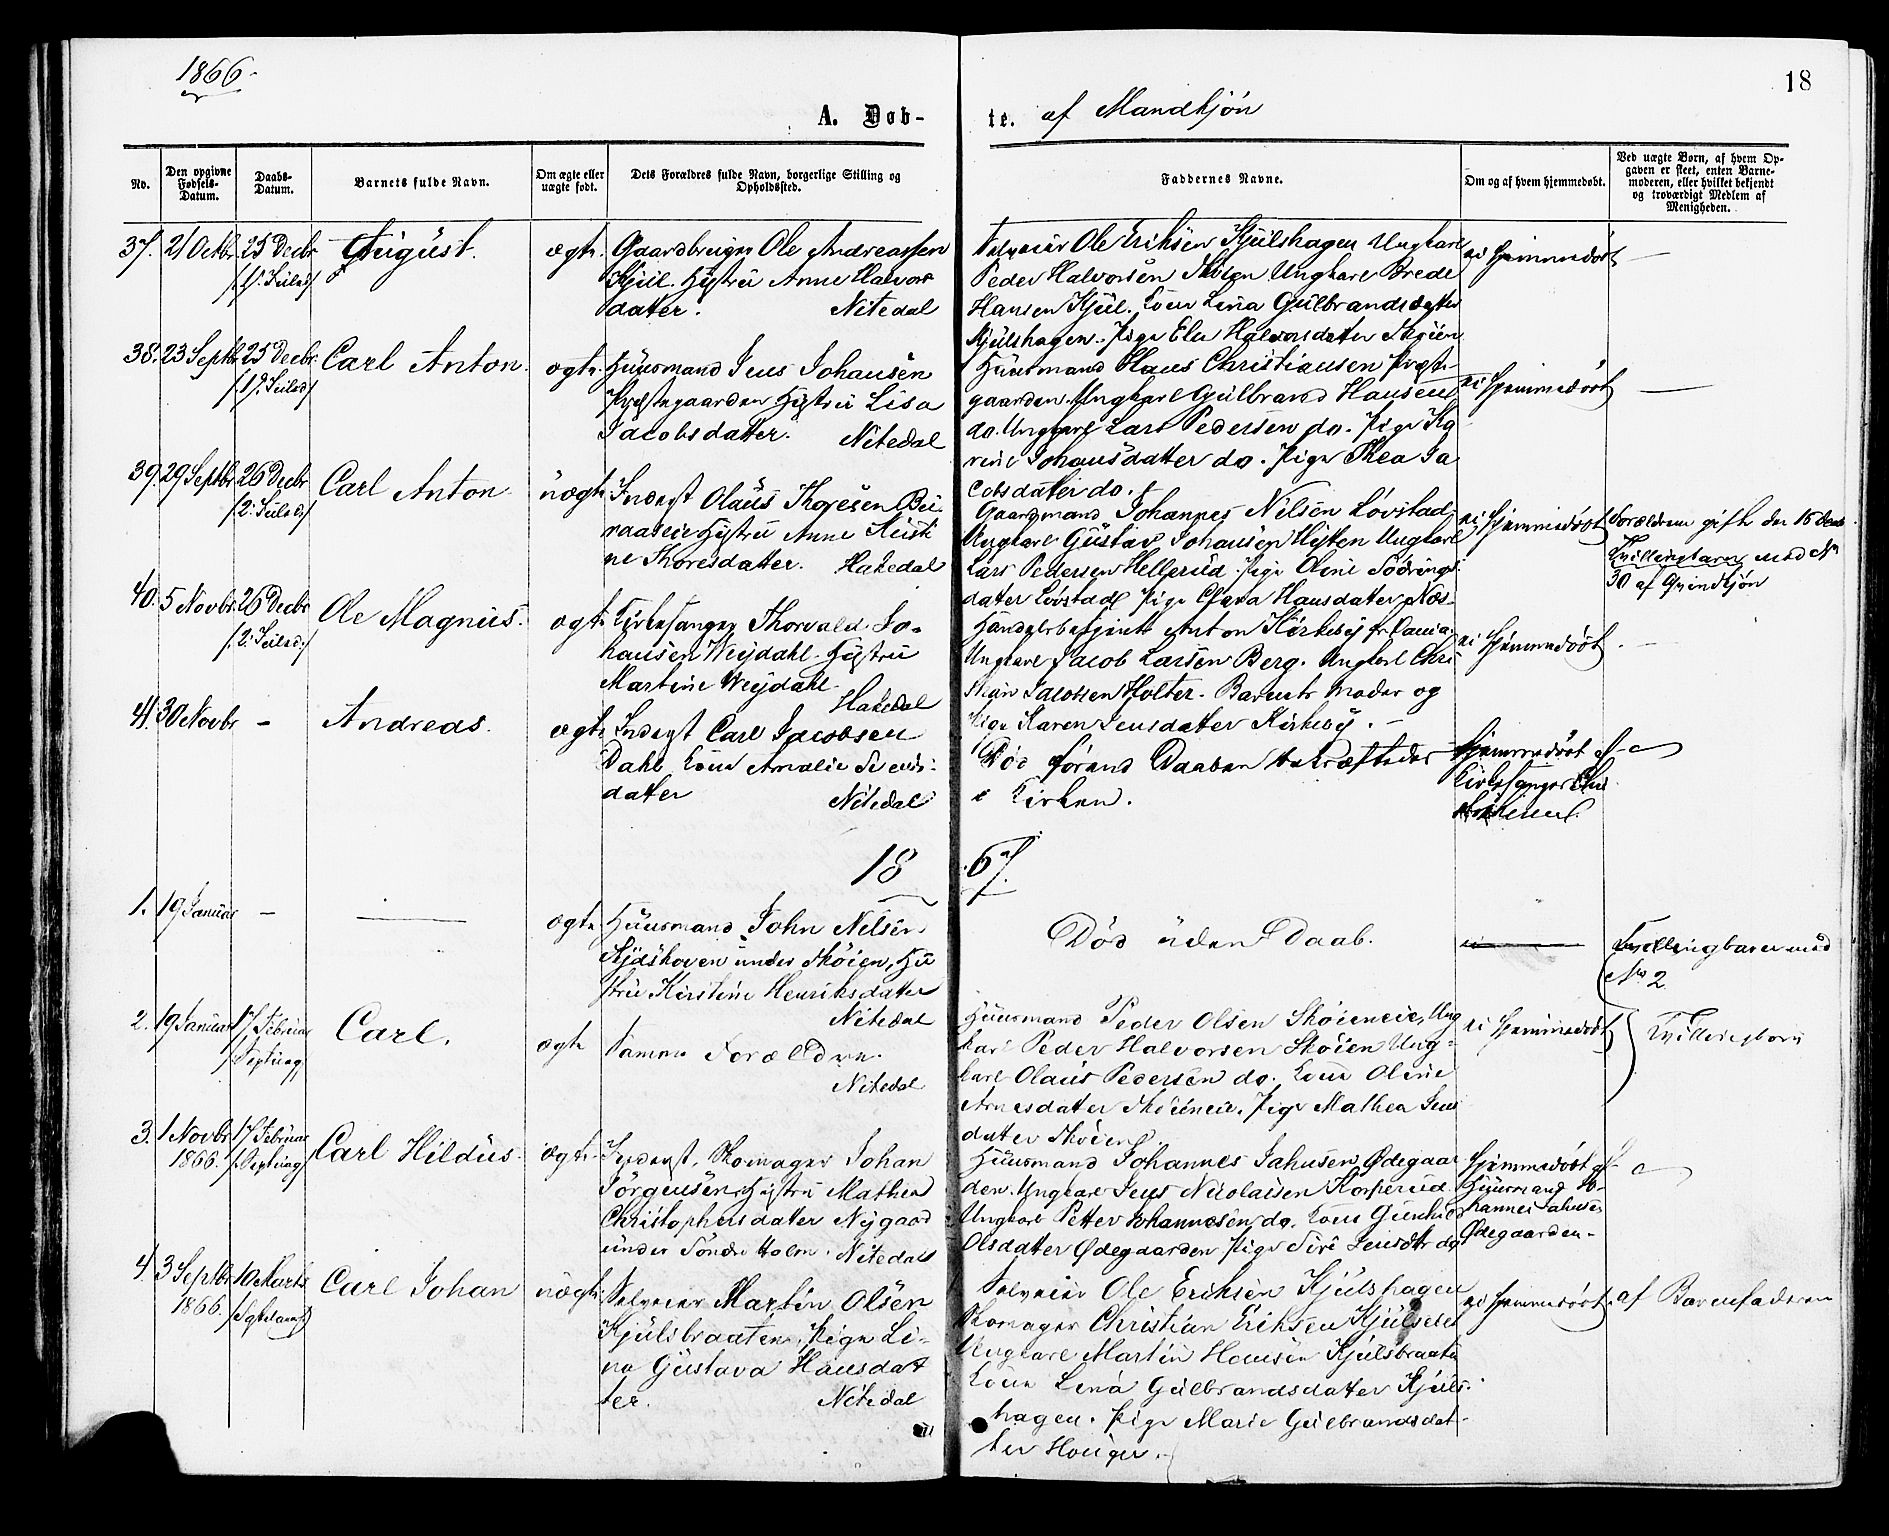 1866.
18
A. Døb-
te. af Mandkjøn
No.
Den opgivne Fødsels-Datum.
Daabs-Datum.
Barnets fulde Navn.
Om ægte eller uægte født.
Dets Forældres fulde Navn, borgerlige Stilling og Opholdssted.
Faddernes Navne.
Om og af hvem hjemmedøbt.
Ved uægte Børn, af hvem Opgaven er skeet, enten Barnemoderen, eller hvilket bekjendt og troværdigt Medlem af Menigheden.
37. 21 Octbr. 25 Decbr /:1. Juled:/
August.
ægte.
Gaardbruger Ole Andreassen
Kjul. Hustru Anne Halvors
datter. Nitedal
Selveier Ole Eriksen Kjulshagen Ungkarl
Peder Halvorsen Skøien Ungkarl Brede
Hansen Kjul. Kone Lina Gulbrandsdatter
Kjulshagen. Pige Elen Halvorsdatter Skøien
ei hjemmedøbt —
38. 23 Septbr. 25 Decbr. /:1. Juled:/
Carl Anton.
ægte.
Huusmand Jens Johansen
Præstegaarden Hustru Lisa
Jacobsdatter. Nitedal
Huusmand Hans Christiansen Præste-
gaarden. Ungkarl Gulbrand Hansen
do. Ungkarl Lars Pedersen do. Pige Ka
rine Johansdatter do. Pige Thea Ja
cobsdatter do.
ei hjemmedøbt —
39. 29 Septbr. 26 Decbr /:2. Juled:/
Carl Anton.
uægte
Inderst Olaus Thoresen
Hustru Anne Kirsti
ne Thoresdatter. Hakedal
Gaardmand Johannes Nilsen Løvstad
Ungkarl Gustav Johansen Ungkarl
Lars Pedersen Hellerud. Pige Oline
datter Løvstad Pige Clara Hansdatter Næs.
ei hjemmedøbt
Forældrene gifte den 15
Tvillingbarn med No
30 af Qvindkjøn
40. 5 Novbr. 26 Decbr /:2. Juled:/
Ole Magnus.
ægte
Kirkesanger Thorvald Jo-
hansen Weydahl. Hustru
Martine Weydahl.
Hakedal
Handelsbetjent Anton Kirkeby
Ungkarl Jacob Larsen Berg. Ungkarl Chri
stian Jacobsen Holter. Barnets Moder og
Pige Karen Jensdatter Kirkeby. —
ei hjemmedøbt. —
41. 30 Novbr —
Andreas.
ægte
Inderst Carl Jacobsen
Dahl Kone Amalie
datter Nitedal
Død førend Daaben bekræftedes
i Kirken.
hjemmedøbt af
Kirkesanger
18 67.
1. 19 Januar — —
ægte.
Huusmand John Nilsen
under Skøien, Hu
stru Kirstine Henriksdatter
Nitedal
Død uden Daab.
Tvillingbarn med
No 2
2. 19 Januar 17 Februar
Carl.
ægte
Samme Forældre.
Nitedal
Huusmand Peder Olsen Skøieneie, Ung
karl Peder Halvorsen Skøien Ung-
karl Olaus Pedersen do. Kone Oline
Arnesdatter Skøieneie. Pige Mathea Jens
datter Skøien.
ei hjemmedøbt
Tvillingbarn
3. 1 Novbr 1866. 17 Februar
Carl Hildus.
ægte.
Inderst, Skomager Johan
Jørgensen, Hustru Mathea
Christophersdatter Nygaard
under Søndre Holm. Nitedal
Huusmand Johannes Jahnsen Ødegaar
den. Ungkarl Jens Nicolaisen Korperud
Ungkarl Petter Johannesen do. Kone Gunhild
Olsdatter Ødegaarden Pige Siri Jensdtr do
hjemmedøbt af
Huusmand Jo-
hannes Jahnsen
Ødegaarden.
4. 3 Septbr 1866. 10 Marts
Carl Johan
uægte
Selveier Martin Olsen
Kjulsbraaten, Pige Li-
na Gustava Hansdat
ter. Nitedal
Selveier Ole Eriksen Kjulshagen
Skomager Christian Eriksen Kjulseie
Ungkarl Martin Hansen Kjulsbraaten
Kone Lina Gulbrandsdatter Kjuls-
hagen. Pige Marie Gulbrandsdat-
ter Hauger.
ei hjemmedøbt.
af Barnefaderen